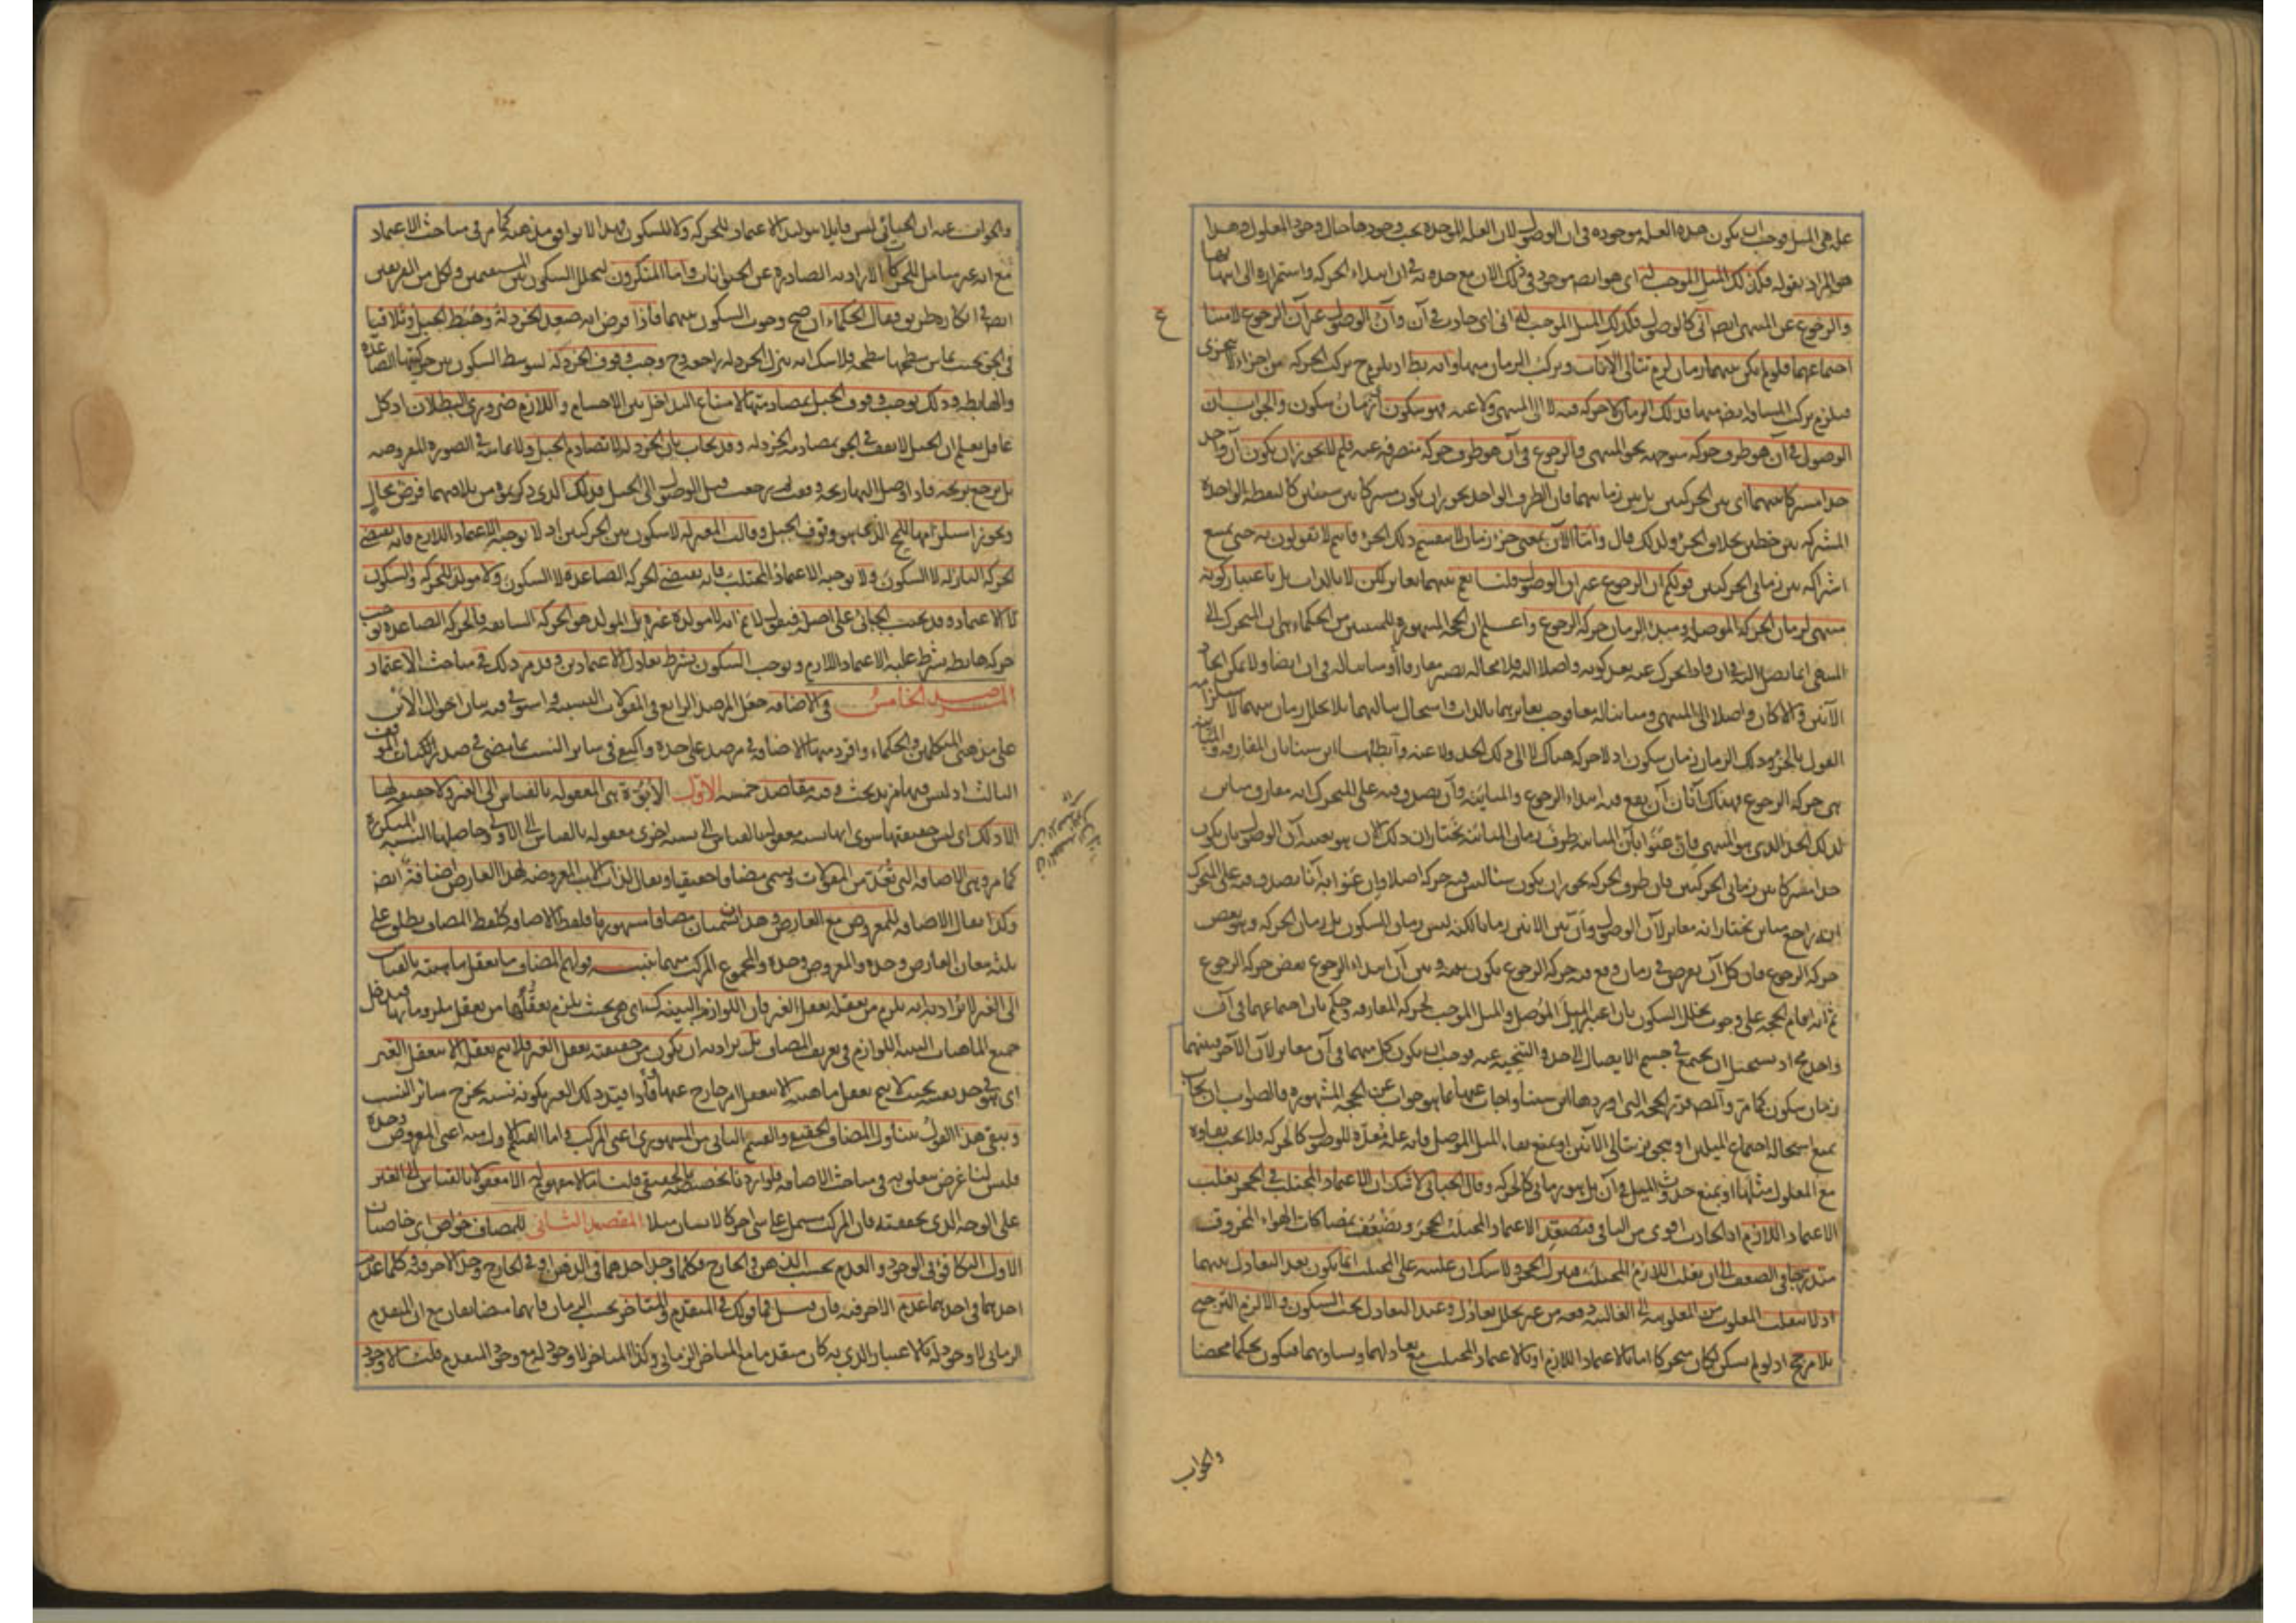 علة هى الميل فوجب ان يكون هذه العلة موجودة فى آن الوصول لان العلة الموجدة يجب وجودها حال وجود المعلول وهذا
هو المراد بقوله فكذلك الميل الموجب له اى هو ايضا موجود فى ذلك الآن مع حدوثه فى آن ابتداء الحركة واستمراره الى انتهائها
والرجوع عن المنتهى ايضا آنى كالوصول فكذلك الميل الموجب له آنى اى حادث فى آن وآن الوصول غير آن الرجوع لامتناع
اجتماعهما فلو لم يكن بينهما زمان لزم تتالى الآنات وتركب الزمان منها وانه باطل اذ يلزم ح تركب الحركة من اجزاء لا تتجزى
فيلزم تركب المسافة ايضا منها فذلك الزمان لا حركة فيه لا الى المنتهى ولا عنه فهو سكون اى زمان سكون والجواب ان
الوصول فى آن هو طرف حركة متوجهة نحو المنتهى والرجوع فى آن هو طرف حركة منصرفة عنه فلم لا يجوز ان يكون آن واحد
حدا مشتركا بينهما اى بين الحركتين بل بين زمانيهما فان الطرف الواحد يجوز ان يكون مشتركا بين شيئين كالنقطة الواحدة
المشتركة بين خطين بخلاف الجزء ولذلك قال واما الآن بمعنى جزء زمان لا ينقسم ذلك الجزء فانتم لا تقولون به حتى يمتنع
اشتراكه بين زمانى الحركتين قولكم آن الرجوع غير آن الوصول قلنا نعم بينهما تغاير لكن لا بالذات بل باعتبار كونه
منتهى لزمان الحركة الموصلة ومبدأ لزمان حركة الرجوع واعلم ان الحجة المشهورة للمثبتين من الحكماء هى ان المتحرك الى
المنتهى انما يصل اليه فى آن فاذا تحرك عنه بعد كونه واصلا اليه فلا محالة يصير مفارقا او مباينا له فى آن ايضا ولا يمكن اتحاد
الآنين والا كان واصلا الى المنتهى ومباينا له معا فوجب تغايرهما بالذات واستحال تتاليهما بلا تخلل زمان بينهما لاستلزامه
القول بالجزء وذلك الزمان زمان سكون اذ لا حركة هناك لا الى ذلك الحد ولا عنه وابطلها ابن سينا بان المفارقة والمباينة
هى حركة الرجوع فهناك آنان آن يقع فيه ابتداء الرجوع والمباينة وآن يصدق فيه على المتحرك انه مفارق مباين
لذلك الحد الذى هو المنتهى فان عنوا بآن المباينة طرف زمان المباينة نختار ان ذلك الآن هو بعينه آن الوصول بان يكون
حدا مشتركا بين زمانى الحركتين فان طرف الحركة يجوز ان يكون شيئا ليس فيه حركة اصلا وان عنوا به آنا يصدق فيه على المتحرك
انه راجع مباين نختار انه مغاير لآن الوصول وان بين الآنين زمانا لكنه ليس زمان السكون بل زمان الحركة وهو بعض
حركة الرجوع فان كل آن يعرض فى زمان وقع فيه حركة الرجوع يكون بينه وبين آن ابتداء الرجوع بعض حركة الرجوع
ثم انه اقام الحجة على وجوب تخلل السكون بان اعتبر الميل الموصل والميل الموجب لحركة المفارقة وحكم بان اجتماعهما فى آن
واحد مح اذ يستحيل ان يجتمع فى جسم الايصال الى حد والتنحية عنه فوجب ان يكون كل منهما فى آن مغاير لآن الآخر وبينهما
زمان سكون كما مر والمصنف قرر الحجة التى اوردها ابن سينا واجاب عنها بما هو جواب عن الحجة المشهورة والصواب ان يجاب
بمنع استحالة اجتماع الميلين او بتجويز تتالى الآنين او بمنع بقاء الميل الموصل فانه علة معدة للوصول كالحركة فلا يجب بقاؤه
مع المعلول مثلها او بمنع حدوث الميل فى آن بل هو زمانى كالحركة وقال الجبائى لا شك ان الاعتماد المجتلب فى الحجر يغلب
الاعتماد اللازم اذ الحادث اقوى من الباقى فيصعد الاعتماد المجتلب الحجر ويضعف بمصاكات الهواء المخروق
متدرجا فى الضعف الى ان يغلب اللازم المجتلب فينزل الحجر ولا شك ان غلبته على المجتلب انما يكون بعد التعادل بينهما
اذ لا ينقلب المغلوب من المغلوبية الى الغالبية دفعة من غير تخلل تعادل وعند التعادل يجب السكون والا لزم الترجيح
بلا مرجح اذ لو لم يسكن لكان متحركا اما بالاعتماد اللازم او بالاعتماد المجتلب مع تعادلهما وتساويهما فيكون تحكما محضا
والجواب
والجواب عنه ان الجبائى ليس قايلا بتوليد الاعتماد للحركة ولا للسكون فهذا لا يوافق مذهبه كما مر فى مباحث الاعتماد
مع انه غير شامل للحركات الارادية الصادرة عن الحيوانات واما المنكرون لتخلل السكون بين المستقيمين ولكل من الفريقين
ايضا فى انكاره طريق فقال الحكماء ان صح وجوب السكون بينهما فاذا فرض انه صعد الخردلة وهبط الجبل وتلاقيا
فى الجو بحيث تماس سطحها سطحه فلا شك انه تنزل الخردلة راجعة وح وجب وقوف الخردلة لتوسط السكون بين حركتيها الصاعدة
والهابطة وذلك يوجب وقوف الجبل بمصادمتها لامتناع التداخل بين الاجسام واللازم ضرورى البطلان اذ كل
عاقل يعلم ان الجبل لا يقف فى الجو بمصادمة الخردلة وقد يجاب بان الخردلة لا تصادم الجبل ولا تماسه فى الصورة المفروضة
بل ترجع بريحه فاذا وصل اليها ريحه وقفت ثم رجعت قبل الوصول الى الجبل فذلك الذى ذكرتموه من تلاقيهما فرض محال
ويجوز استلزامها المح الذى هو وقوف الجبل وقالت المعتزلة لا سكون بين الحركتين اذ لا يوجبه الاعتماد اللازم فانه يقتضى
الحركة النازلة لا السكون ولا يوجبه الاعتماد المجتلب فانه يقتضى الحركة الصاعدة لا السكون ولا مولد للحركة والسكون
الا الاعتماد وقد يجيب الجبائى على اصله فيقول لا نم انه لا مولد غيره بل المولد هو الحركة السابقة فالحركة الصاعدة توجب
حركة هابطة بشرط غلبة الاعتماد اللازم وتوجب السكون بشرط تعادل الاعتمادين وقد مر ذلك فى مباحث الاعتماد
المرصد الخامس فى الاضافة جعل المرصد الرابع فى المقولات النسبية واستوفى فيه بيان احوال الاين
على مذهبى المتكلمين والحكماء وافرد منها الاضافة فى مرصد على حدة واكتفى فى ساير النسب بما مضى فى صدر الموقف
الثالث اذ ليس فيها مزيد بحث وفيه مقاصد خمسة الاول الابوة هى المعقولة بالقياس الى الغير ولا حقيقة لها
الا ذلك اى ليس حقيقتها سوى انها نسبة معقولة بالقياس الى نسبة اخرى معقولة بالقياس الى الاولى وحاصلها النسبة المتكررة
كما مر وهى الاضافة التى تعد من المقولات ويسمى مضافا حقيقيا ويقال لذات الاب المعروضة لهذا العارض اضافة ايضا
وكذا يقال الاضافة للمعروض مع العارض وهذان يسميان مضافا مشهوريا فلفظ الاضافة كلفظ المضاف يطلق على
ثلثة معان العارض وحده والمعروض وحده والمجموع المركب منهما تنبيه قولهم المضاف ما يعقل ماهيته بالقياس
الى الغير لا يراد به انه يلزم من تعقله تعقل الغير فان اللوازم البينة كذلك اى هى بحيث يلزم تعقلها من تعقل ملزوماتها فيدخل
جميع الماهيات البينة اللوازم فى تعريف المضاف بل يراد به ان يكون من حقيقته تعقل الغير فلا يتم تعقله الا بتعقل الغير
اى هو فى حد نفسه بحيث لا يتم تعقل ماهيته الا بتعقل امر خارج عنها فاذا قيد ذلك الغير بكونه نسبة يخرج سائر النسب
وبقى هذا القول متناولا للمضاف الحقيقى والقسم الثانى من المشهورى اعنى المركب واما القسم الاول منه اعنى المعروض وحده
فليس لنا غرض يتعلق به فى مباحث الاضافة فلو اردنا تخصيصه بالحقيقى قلنا ما لا مفهوم له الا معقولا بالقياس الى الغير
على الوجه الذى تحققته فان المركب مشتمل على شىء آخر كالانسان مثلا المقصد الثانى للمضاف خواص اى خاصتان
الاول التكافؤ فى الوجود والعدم بحسب الذهن والخارج فكلما وجد احدهما فى الذهن او فى الخارج وجد الآخر فيه وكلما عدم
احدهما فى احدهما عدم الآخر فيه فان قيل فما قولك فى المتقدم والمتأخر بحسب الزمان فانهما متضايفان مع ان المتقدم
الزمانى لا وجود له بالاعتبار الذى به كان متقدما مع المتأخر الزمانى وكذا المتأخر لا وجود له مع وجود المتقدم قلت لا وجود